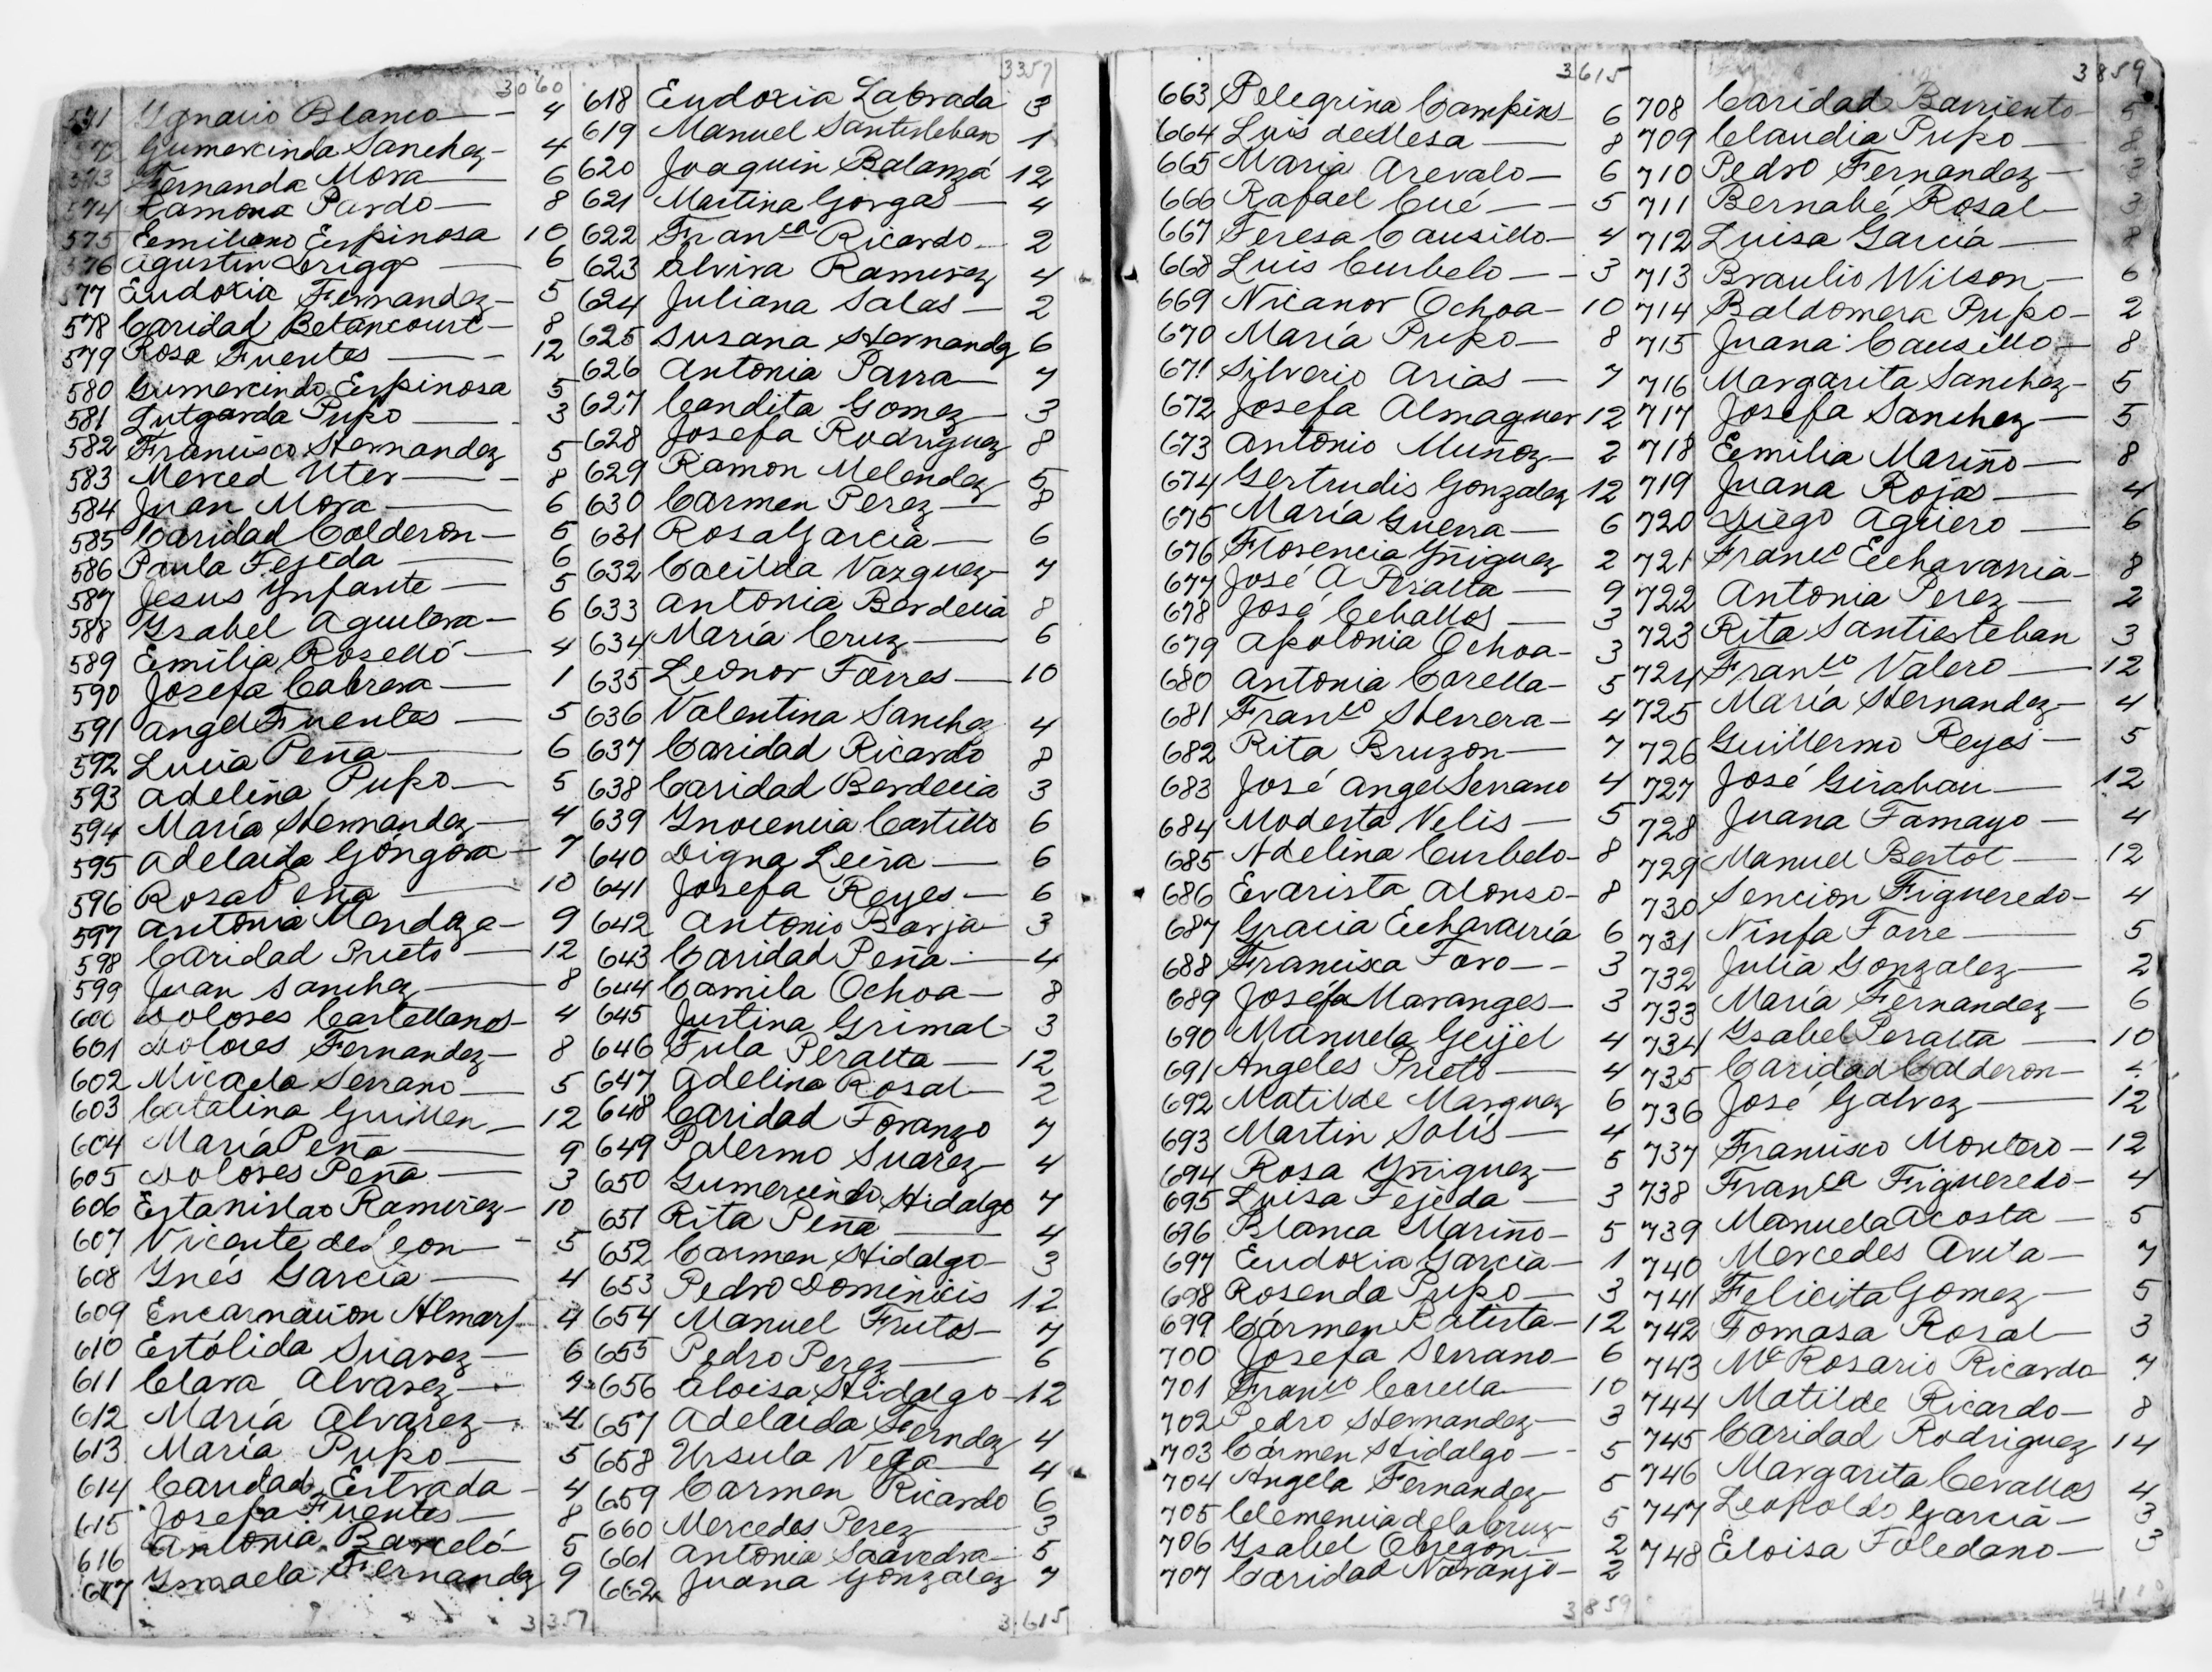 3060
571 Ygnacio Blanco — 4
572 Gumercinda Sanchez — 4
573 Fernanda Mora — 6
574 Ramona Pardo — 8
575 Eemiliano Eespinosa 10
576 Agustin Griggs — 6
577 Eudoxia Fernandez — 5
578 Caridad Betancourt — 8
579 Rosa Fuentes — 12
580 Gumercindo Eespinosa 5
581 Lutgarda Pupo — 3
582 Francisco Hernandez 5
583 Merced Uter — 8
584 Juan Mora — 6
585 Caridad Calderon — 5
586 Paula Tejeda — 6
587 Jesus Ynfante — 5
588 Ysabel Aguilera — 6
589 Emilia Roselló — 4
590 Josefa Cabrera — 1
591 Angel Fuentes — 5
592 Lucia Peña — 6
593 Adelina Pupo — 5
594 María Hernandez — 4
595 Adelaida Góngora — 7
596 Rosa Peña — 10
597 Antonia Mendoza — 9
598 Caridad Prieto — 12
599 Juan Sanchez — 8
600 Dolores Castellanos — 4
601 Dolores Fernandez — 8
602 Micaela Serrano — 5
603 Catalina Guillen — 12
604 María Peña — 9
605 Dolores Peña — 3
606 Estanislao Ramirez — 10
607 Vicente de Leon — 5
608 Ynés Garcia — 4
609 Encarnación Almarf 4
610 Estólida Suarez — 6
611 Clara Alvarez — 9
612 María Alvarez — 4
613 María Pupo — 5
614 Caridad Estrada — 4
615 Josefa Fuentes — 8
616 Antonia Barceló — 5
617 Ymaela Fernandez 9
3357
3357
618 Eudoxia Labrada 3
619 Manuel Santisteban 1
620 Joaquin Balanzá 12
621 Martina Gorgas — 4
622 Franca Ricardo — 2
623 Alvira Ramirez 4
624 Juliana Salas — 2
625 Susana Hernandz 6
626 Antonia Parra — 7
627 Candita Gomez — 3
628 Josefa Rodriguez 8
629 Ramon Melendez 5
630 Carmen Perez — 8
631 Rosa Garcia — 6
632 Cacilda Vazquez 7
633 Antonia Berdecia 8
634 María Cruz — 6
635 Leonor Torres — 10
636 Valentina Sanchez 4
637 Caridad Ricardo 8
638 Caridad Berdecia 3
639 Ynocencia Castillo 6
640 Digna Leira — 6
641 Josefa Reyes — 6
642 Antonio Borja 3
643 Caridad Peña — 4
644 Camila Ochoa — 8
645 Justina Grimal 3
646 Tula Peralta — 12
647 Adelina Rosal 2
648 Caridad Toranzo 7
649 Palermo Suarez — 4
650 Gumercindo Hidalgo 7
651 Rita Peña — 4
652 Carmen Hidalgo — 3
653 Pedro Dominicis 12
654 Manuel Frutos — 7
655 Pedro Perez — 6
656 Aloisa Hidalgo — 12
657 Adelaida Ferndez 4
658 Ursula Vega 4
659 Carmen Ricardo 6
660 Mercedes Perez 3
661 Antonia Saavedra — 5
662 Juana Gonzalez 7
3615
3615
663 Pelegrina Campins 6
664 Luis de Mesa — 8
665 Maria Arevalo — 6
666 Rafael Cué — 5
667 Teresa Causillo — 4
668 Luis Curbelo — 3
669 Nicanor Ochoa — 10
670 María Pupo — 8
671 Silverio Arias — 7
672 Josefa Almaguer 12
673 Antonio Muñoz — 2
674 Gertrudis Gonzalez 12
675 María Guerra — 6
676 Florencia Yñiguez 2
677 José A Peralta — 9
678 José Ceballos — 3
679 Apolonia Ochoa — 3
680 Antonia Carella — 5
681 Franco Herrera — 4
682 Rita Bruzon — 7
683 José Angel Serrano 4
684 Modesta Velis — 5
685 Adelina Curbelo — 8
686 Evarista Alonso — 8
687 Gracia Eechavarría 6
688 Francisca Toro — 3
689 Josefa Maranges — 3
690 Manuela Geijel 4
691 Angeles Prieto — 4
692 Matilde Marquez 6
693 Martin Solís — 4
694 Rosa Yñiguez — 5
695 Luisa Tejeda — 3
696 Blanca Mariño — 5
697 Eudoxia Garcia — 1
698 Rosenda Pupo — 3
699 Cármen Batista — 12
700 Josefa Serrano — 6
701 Franco Carella — 10
702 Pedro Hernandez — 3
703 Cármen Hidalgo — 5
704 Angela Fernandez 5
705 Clemencia de la Cruz 5
706 Ysabel Obregon — 2
707 Caridad Naranjo — 2
3859
3859
708 Caridad Barriento 5
709 Claudia Pupo — 8
710 Pedro Fernandez — 3
711 Bernabé Rosal — 3
712 Luisa García — 8
713 Braulio Wilson — 6
714 Baldomera Pupo — 2
715 Juana Causillo — 8
716 Margarita Sanchez — 5
717 Josefa Sanchez — 5
718 Eemilia Mariño — 8
719 Juana Rojas — 4
720 Diego Agüero — 6
721 Franco Eechavarria — 8
722 Antonia Perez — 2
723 Rita Santiesteban 3
724 Franco Valero — 12
725 María Hernandez — 4
726 Guillermo Reyes — 5
727 José Girabau — 12
728 Juana Tamayo — 4
729 Manuel Bertot — 12
730 Sencion Figueredo — 4
731 Ninfa Torre — 5
732 Julia Gonzalez — 2
733 María Fernandez — 6
734 Ysabel Peralta — 10
735 Caridad Calderon — 4
736 José Galvez — 12
737 Francisco Montero — 12
738 Franca Figueredo — 4
739 Manuela Acosta — 5
740 Mercedes Avila — 7
741 Felicita Gomez — 5
742 Tomasa Rosal — 3
743 Ma Rosario Ricardo 7
744 Matilde Ricardo — 8
745 Caridad Rodriguez 14
746 Margarita Cevallos 4
747 Leopoldo Garcia — 3
748 Eloisa Toledano — 3